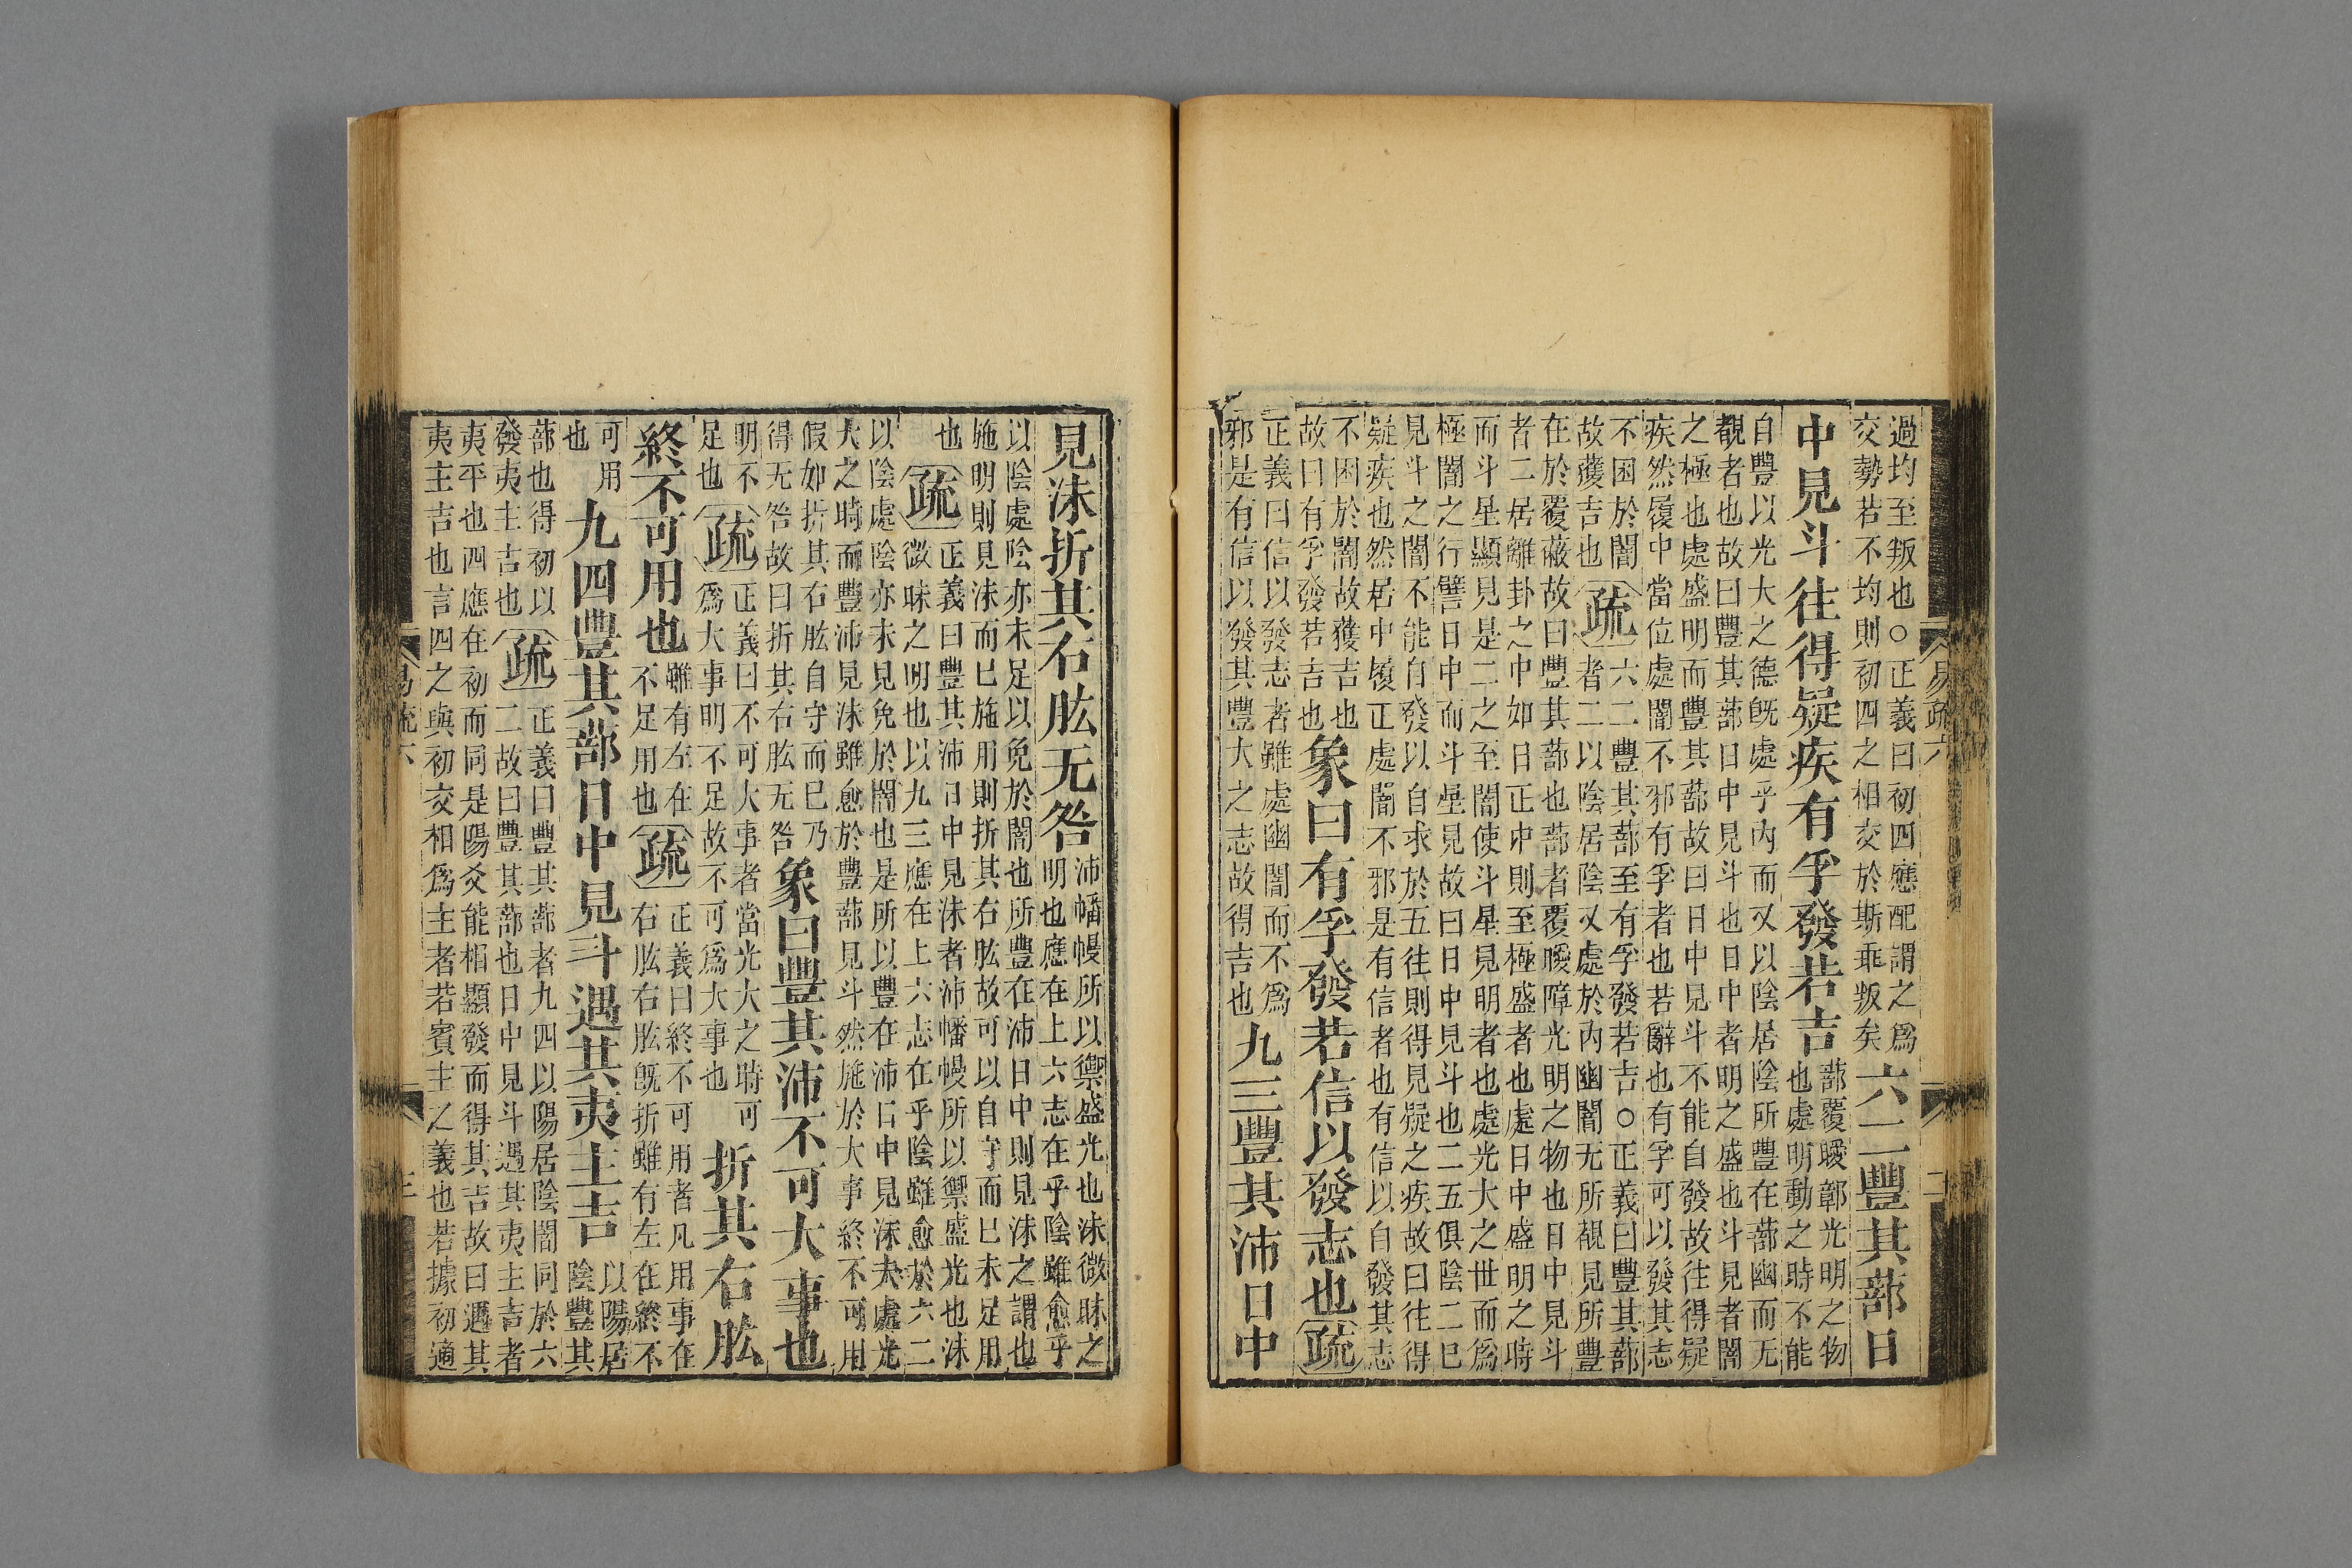 過均至叛也○正義曰初四應配謂之爲
交勢若不均則初四之相交於斯乖叛矣
六二豐其蔀日
中見斗往得疑疾有孚發若吉
蔀覆曖鄣光明之物
也處明動之時不能
自豐以光大之德旣處乎內而又以陰居陰所豐在蔀幽而无
覩者也故曰豐其蔀日中見斗也日中者明之盛也斗見者闇
之極也處盛明而豐其蔀故曰日中見斗不能自發故往得疑
疾然履中當位處闇不邪有孚者也若辭也有孚可以發其志
不困於闇
故獲吉也
疏
六二豐其蔀至有孚發若吉○正義曰豐其蔀
者二以陰居陰又處於內幽闇无所覩見所豐
在於覆蔽故曰豐其蔀也蔀者覆曖障光明之物也日中見斗
者二居離卦之中如日正中則至極盛者也處日中盛明之時
而斗星顯見是二之至闇使斗星見明者也處光大之世而爲
極闇之行譬日中而斗星見故曰日中見斗也二五俱陰二巳
見斗之闇不能自發以自求於五往則得見疑之疾故曰往得
疑疾也然居中履正處闇不邪是有信者也有信以自發其志
不困於闇故獲吉也
故曰有孚發若吉也
象曰有孚發若信以發志也
疏
正義曰信以發志者雖處幽闇而不爲
邪是有信以發其豐大之志故得吉也
九三豐其沛日中
見沬折其右肱无咎
沛幡幔所以禦盛光也沬微昧之
明也應在上六志在乎陰雖愈乎
以陰處陰亦未足以免於闇也所豐在沛日中則見沬之謂也
施明則見沬而巳施用則折其右肱故可以自守而巳未足用
也
疏
正義曰豐其沛日中見沬者沛幡幔所以禦盛光也沬
微昧之明也以九三應在上六志在乎陰雖愈於六二
以陰處陰亦未見免於闇也是所以豐在沛日中見沬夫處光
大之時而豐沛見沬雖愈於豐蔀見斗然施於大事終不可用
假如折其右肱自守而巳乃
得无咎故曰折其右肱无咎
象曰豐其沛不可大事也
明不
足也
疏
正義曰不可大事者當光大之時可
爲大事明不足故不可爲大事也
折其右肱
終不可用也
雖有左在
不足用也
疏
正義曰終不可用者凡用事在
右肱右肱旣折雖有左在終不
可用
也
九四豐其蔀日中見斗遇其夷主吉
以陽居
陰豐其
蔀也得初以
發夷主吉也
疏
正義曰豐其蔀者九四以陽居陰闇同於六
二故曰豐其蔀也日中見斗遇其夷主吉者
夷平也四應在初而同是陽爻能相顯發而得其吉故曰遇其
夷主吉也言四之與初交相爲主者若賓主之義也若據初適
易疏六